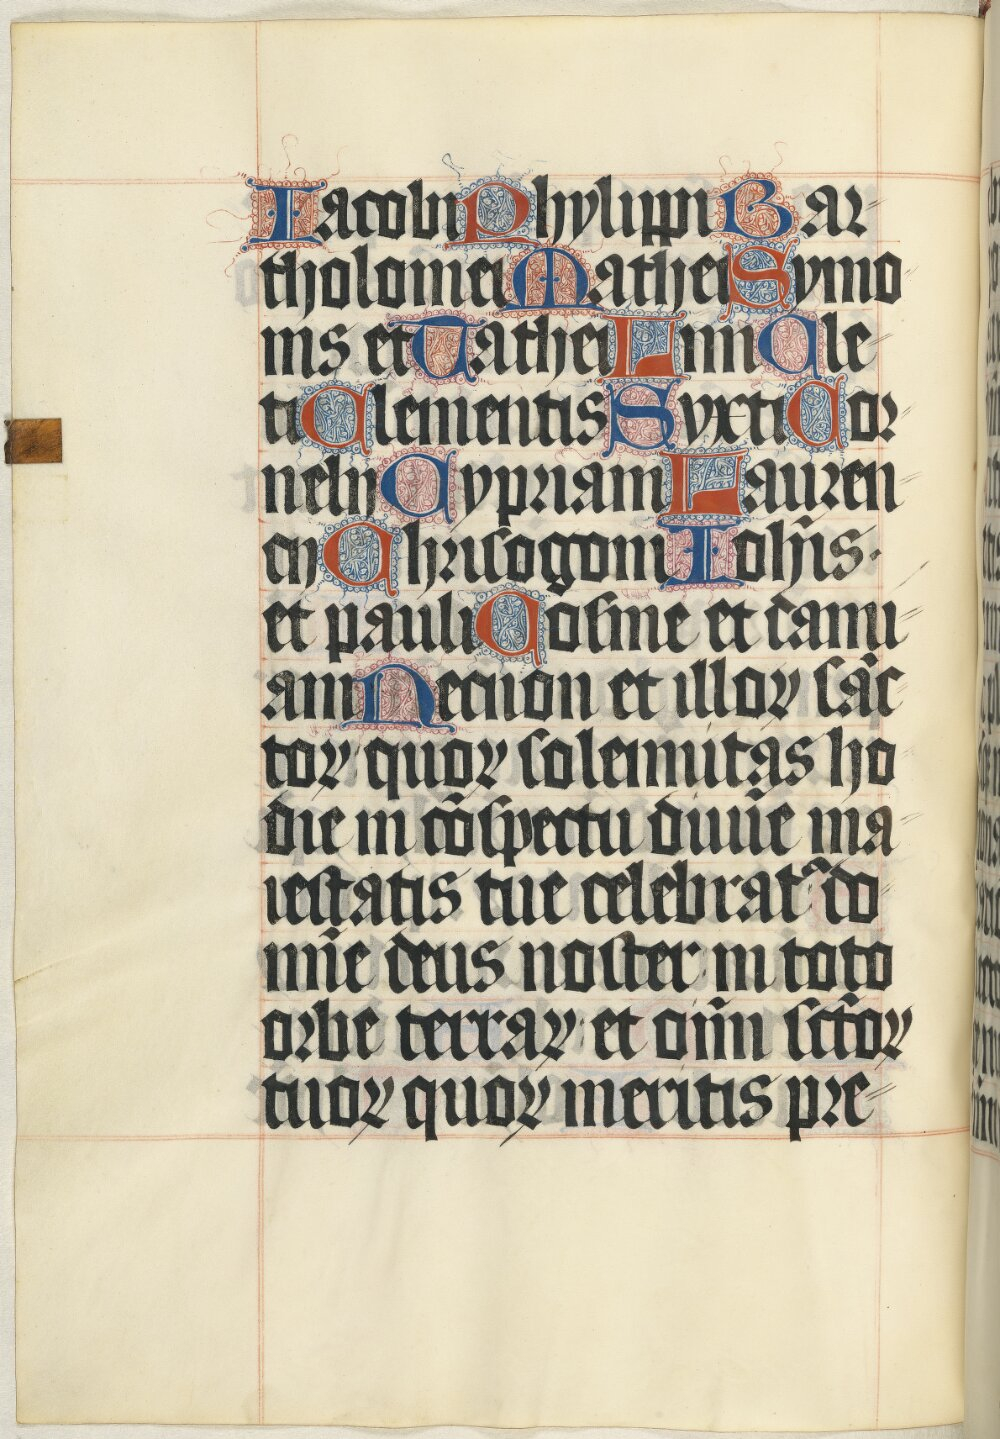 Iacobi Phylippi Bar
tholomei Mathei Symo
nis et Tathei Lini Cle
ti Clementis Syxti Cor
nelij Cypriani Lauren
cij Chrisogoni Ioh̄is·
et pauli Cosme et dami
ani Necnon et illoꝝ sāc
toꝝ quoꝝ solennitas ho
die in cōspectu diuīe ma
iestatis tue celebratᷣ do
mīe deus noster in toto
orbe terraꝝ et om̄i sctōꝝ
tuoꝝ quoꝝ meritis pre